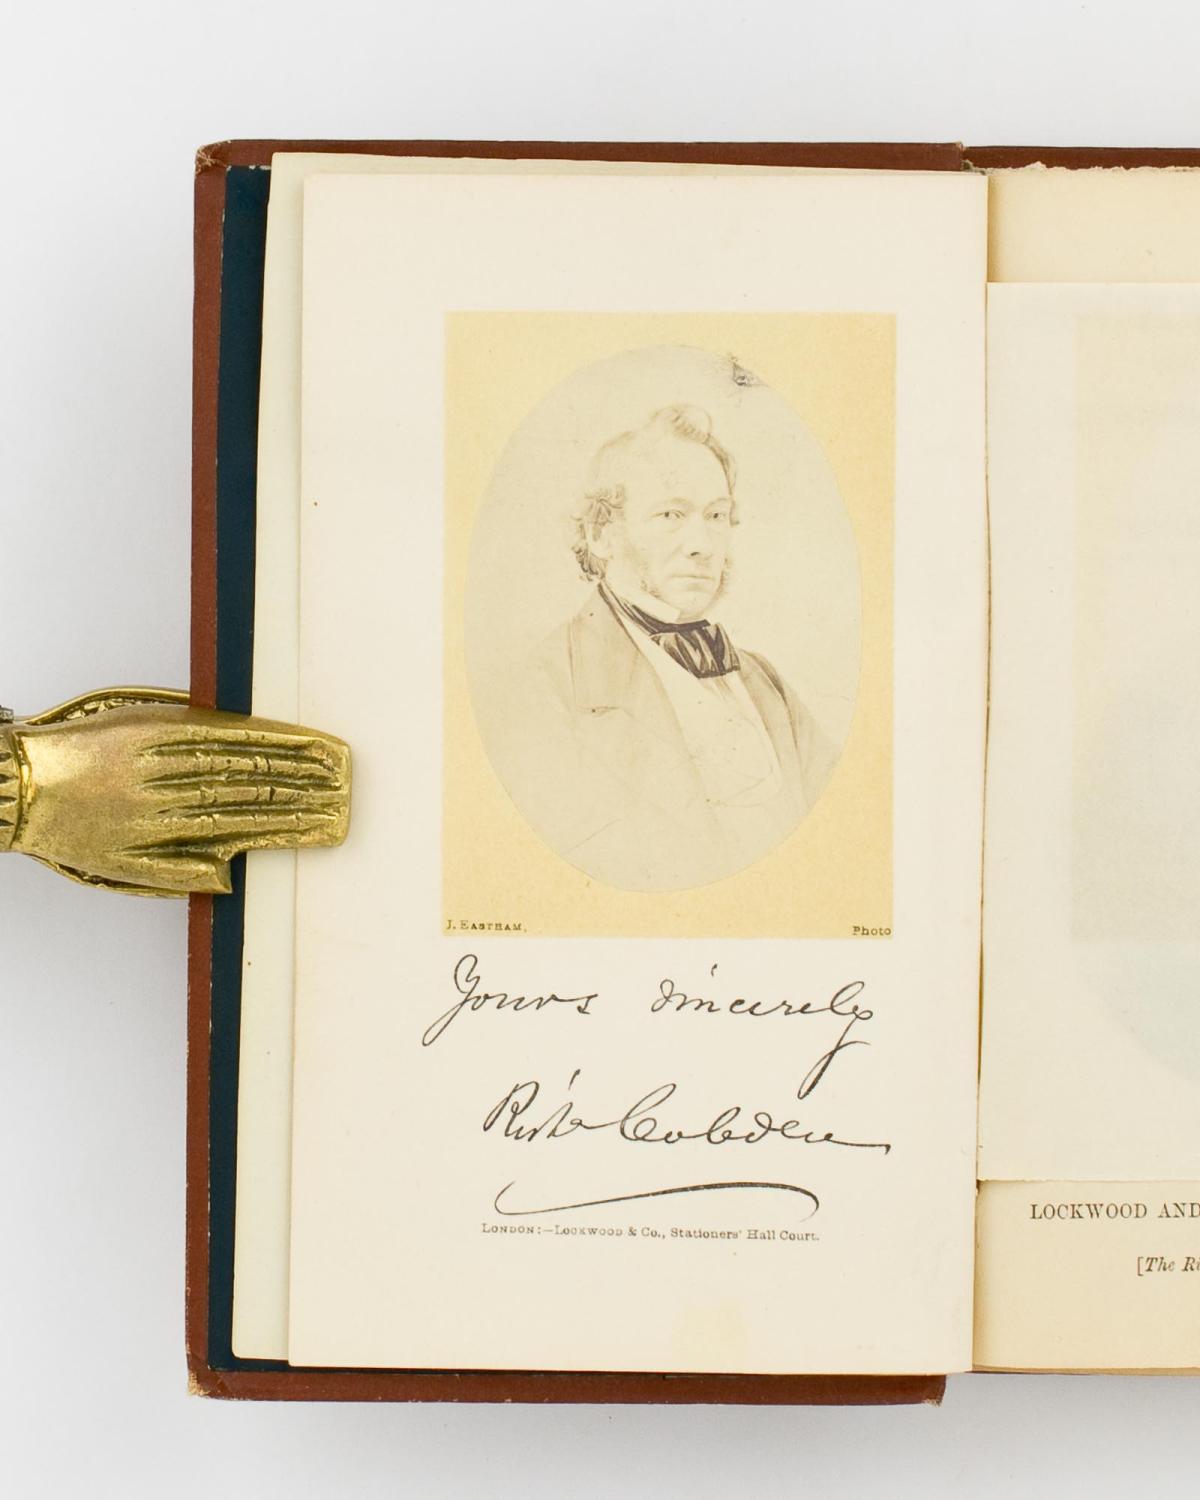 J. EASTHAM, Photo
Yours sincerely
Richd Cobden
LONDON:—LOCKWOOD & Co., Stationers' Hall Court.
LOCKWOOD AND
[The Ri